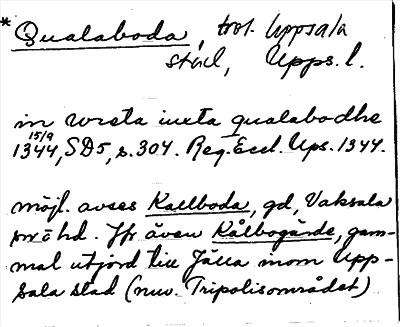 *Qualaboda, trol. Uppsala
stad, Upps. l.
in wreta iuxta qualabodhe
15/9
1344, SD5, s. 304. Reg. Eccl. Ups. 1344.
möjl. avses Kallboda, gd, Vaksala
sn o hd. Jfr även Kålbogärde, gam-
mal utjord till Jälla inom Upp-
sala stad (nuv. Tripolisområdet)